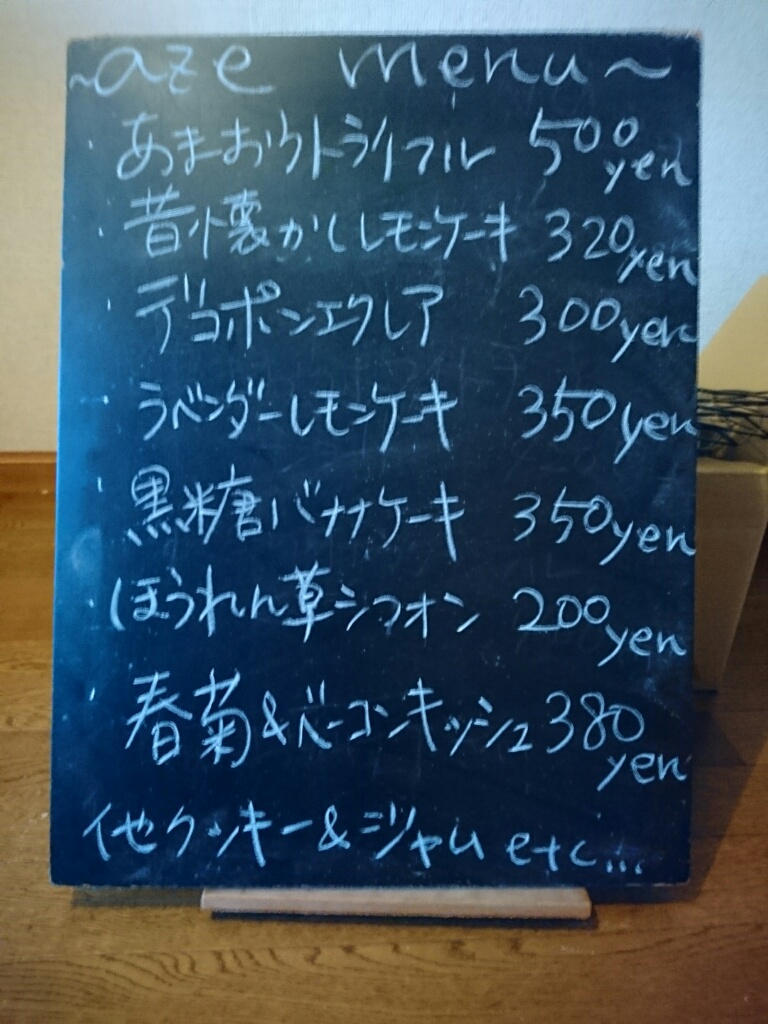 ~aze menu~
・あまおうトライフル 500yen
・昔懐かしレモンケーキ 320yen
・デコポンエクレア 300yen
・ラベンダーレモンケーキ 350yen
・黒糖バナナケーキ 350yen
・ほうれん草シフォン 200yen
・春菊&ベーコンキッシュ 380yen
他クッキー&ジャム etc...